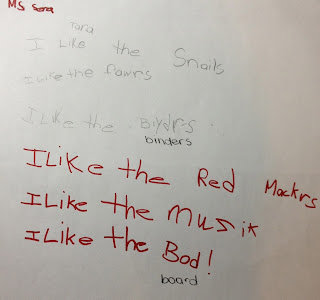 MS Sena
Tara
I Like the Snails
I Like the flowrs
I Like the Biydrs.
binders
I Like the Red Mackrs
I Like the musik
I Like the Bod!
board